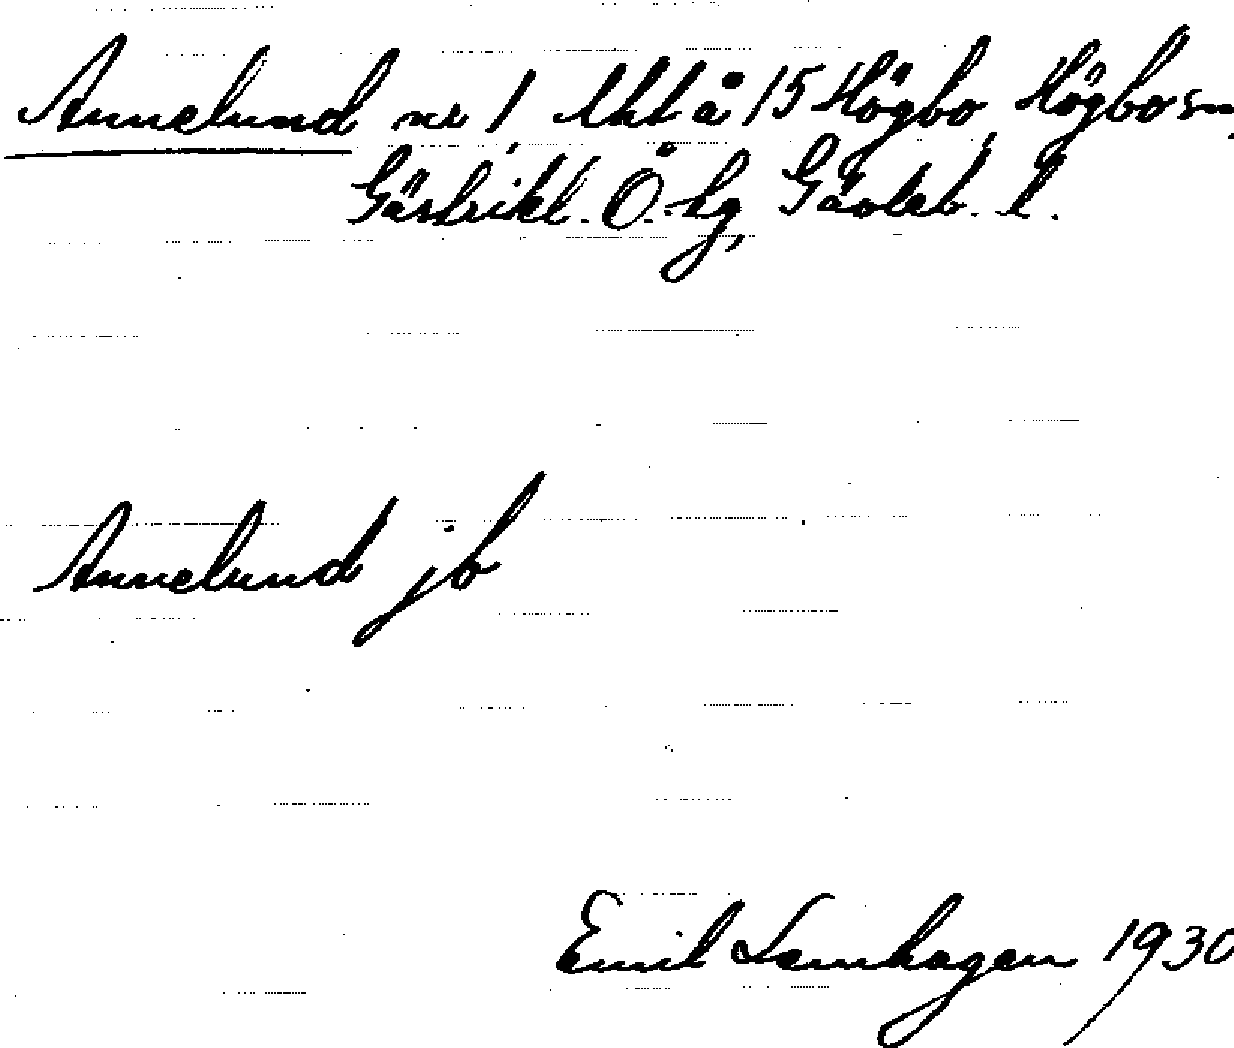 Annelund nr 1, Utl å 15 Högbo, Högbo sn,
Gästrikl. Ö. hg, Gävleb. l.
Annelund jb
Emil Lemhagen 1930